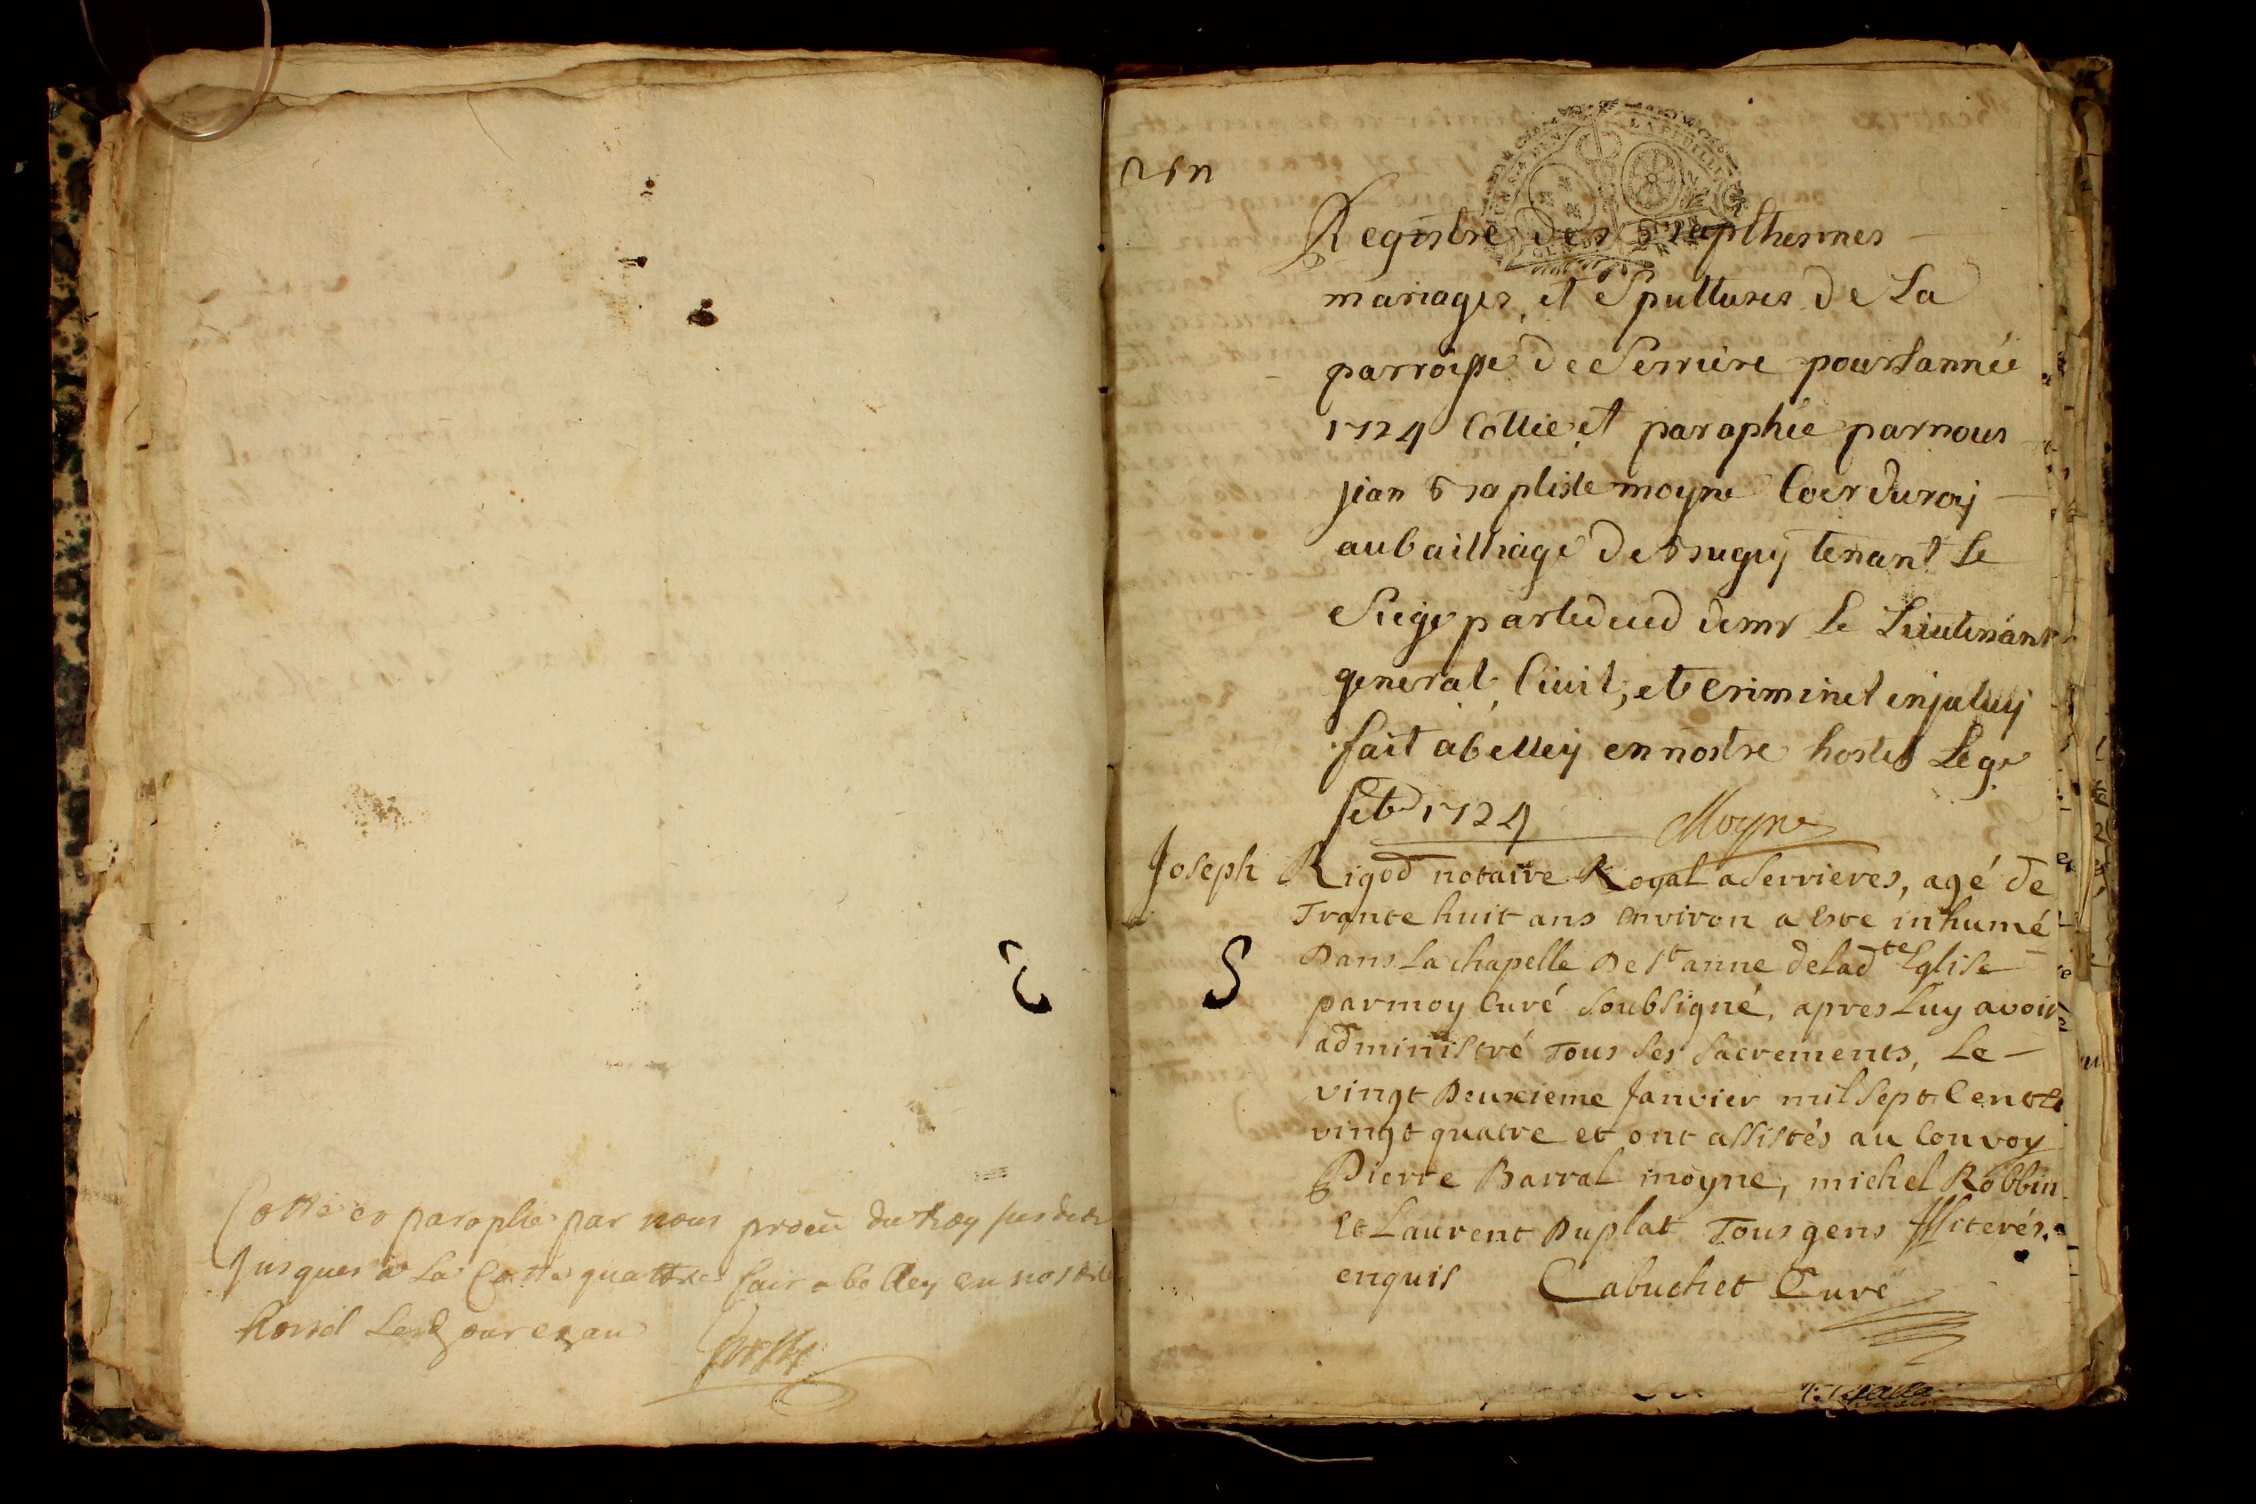 Cotté et paraphé par nous procu du Roy susdit
Jusques à la Cotte quattre fait a belley en nostre
hostel Les jour et an
Registre des Bapthesmes
mariages, et Sepultures de La
parroisse de Serriere pour Lannée
1724 Cottée et paraphée par nous
jean Baptiste moyne Coer du roy
au bailliage de Bugey tenant Le
Siege par led deced de mr Le Lieutenant
general Civil, et Criminel en jaluy
fait a belley en nostre hostel Le 9e
feb 1724 Moyne
Joseph Rigod notaire Royal a Serrieres, agé de
Trante huit ans environ a este inhumé
Dans La chapelle De st anne de lad te Eglise
par moy Curé Soubsigné, apres Luy avoir
administré Tous ses Sacrements, Le
vingt Deuxieme Janvier mil sept Cents
vingt quatre et ont assistés au Convoy
Pierre Barral moyne, michel Robbin
et Laurent Duplat Tous gens Illiterés.
enquis Cabuchet Curé
S